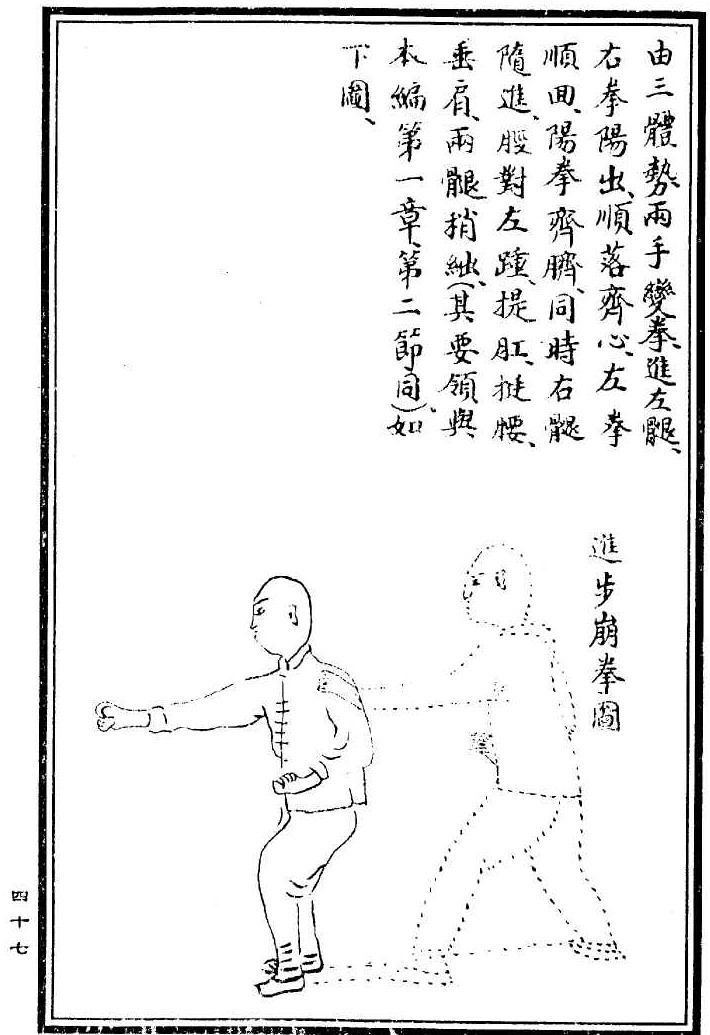 由三體勢兩手變拳、進左腿、
右拳陽出、順落齊心、左拳
順回、陽拳齊臍、同時右腿
隨進、脛對左踵、提肛、挺腰、
垂肩、兩腿稍絀、(其要領與
本編第一章、第二節同)、如
下圖、
進步崩拳圖
四十七